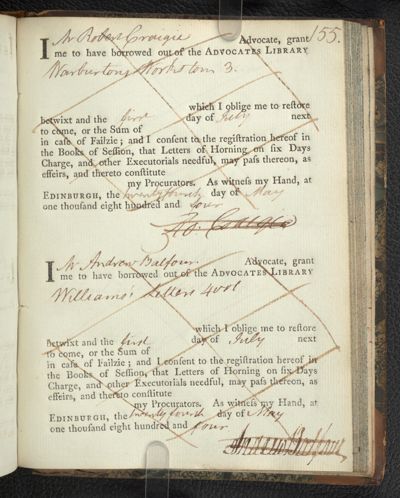 155.
I Mr Robert Craigie Advocate, grant
me to have borrowed out of the ADVOCATES LIBRARY
Warburtons Works tom 3.
which I oblige me to reſtore
betwixt and the first day of July next
to come, or the Sum of
in caſe of Failzie; and I conſent to the regiſtration hereof in
the Books of Seſſion, that Letters of Horning on ſix Days
Charge, and other Executorials needful, may paſs thereon, as
effeirs, and thereto conſtitute
my Procurators. As witneſs my Hand, at
EDINBURGH, the twenty fourth day of May
one thouſand eight hundred and four
Ro. Craigie
I Mr Andrew Balfour Advocate, grant
me to have borrowed out of the ADVOCATES LIBRARY
Williams's Letters 4 vol
which I oblige me to reſtore
betwixt and the first day of July next
to come, or the Sum of
in caſe of Failzie; and I conſent to the regiſtration hereof in
the Books of Seſſion, that Letters of Horning on ſix Days
Charge, and other Executorials needful, may paſs thereon, as
effeirs, and thereto conſtitute
my Procurators. As witneſs my Hand, at
EDINBURGH, the twenty fourth day of May
one thouſand eight hundred and four
Andrew Balfour